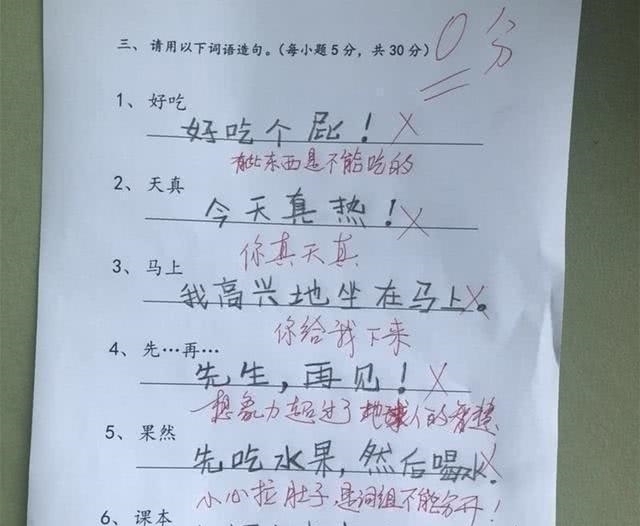 三、请用以下词语造句。(每小题5分，共30分)
0分
1、好吃
好吃个屁！
有些东西是不能吃的
2、天真
今天真热！
你真天真
3、马上
我高兴地坐在马上。
你给我下来
4、先…再…
先生，再见！
想象力超过了地球人的智慧
5、果然
先吃水果，然后喝水。
小心拉肚子，是词组不能分开！
6、课本